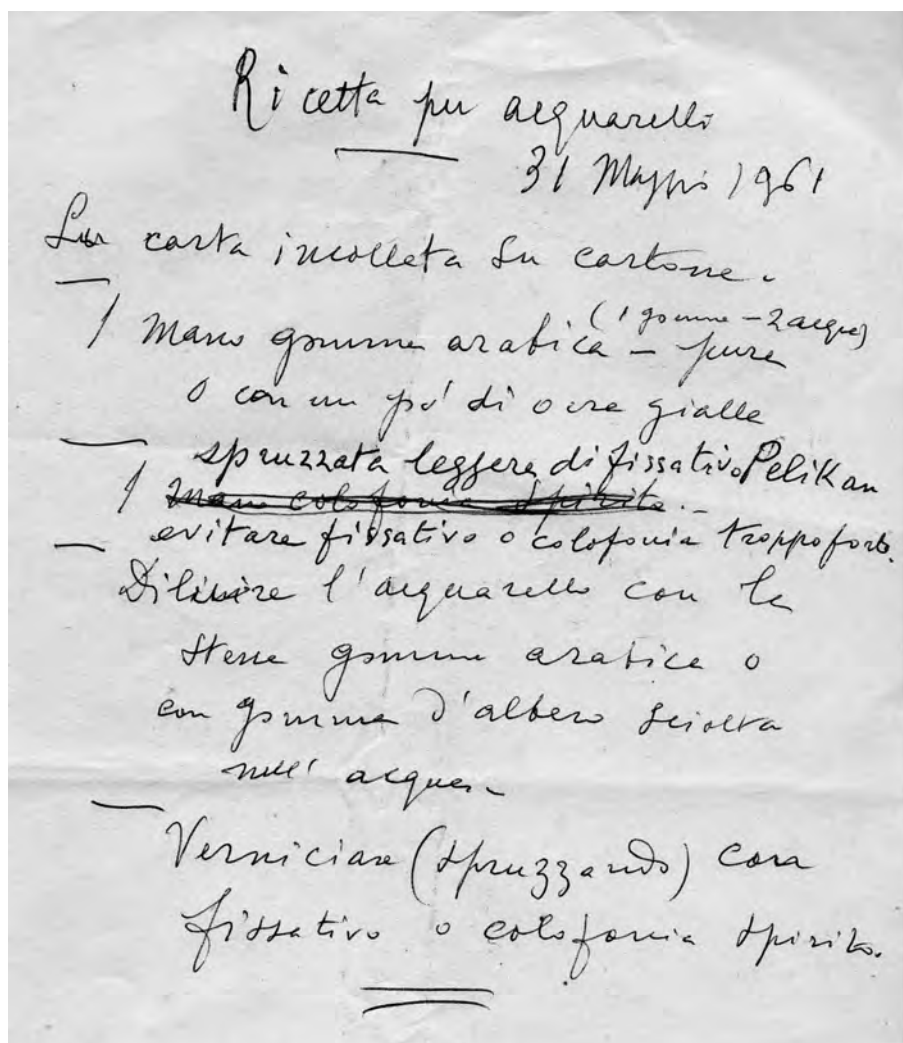 Ricetta per acquarello
31 Maggio 1961
Su carta incollata su cartone.
(1 gomma - 2 acqua)
1 Mano gomma arabica - pura
o con un po' di ocra gialla
spruzzata leggera di fissativo Pelikan
1 Mano colofonia spirito. -
evitare fissativo o colofonia troppo forte.
Diluire l'acquarello con la
stessa gomma arabica o
con gomma d'albero sciolta
nell' acqua. -
Verniciare (spruzzando) cera
fissativo o colofonia spirito.